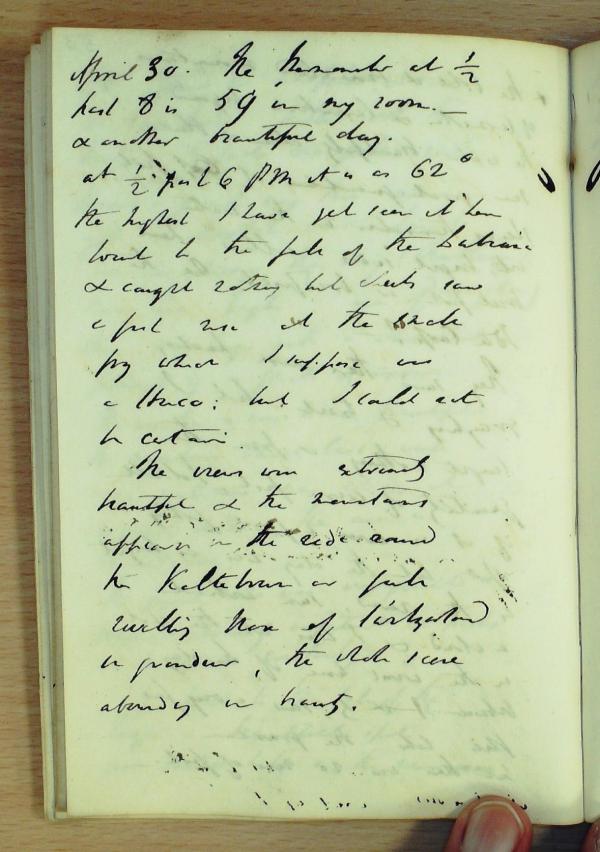 April 30. The Thermometer at ½
past 8 is 59 in my room. —
& another beautiful day.
at ½ past 6 PM it is as 62°
the highest I have yet seen it here
Went to the falls of the
& caught nothing but
a fish rise at the
fry which I suppose was
a Huco: but I could not
be certain.
The views were extremely
beautiful & the mountains
appear in the
the are quite
rivalling those of Switzerland
in grandeur, the whole scene
abounding in beauty.